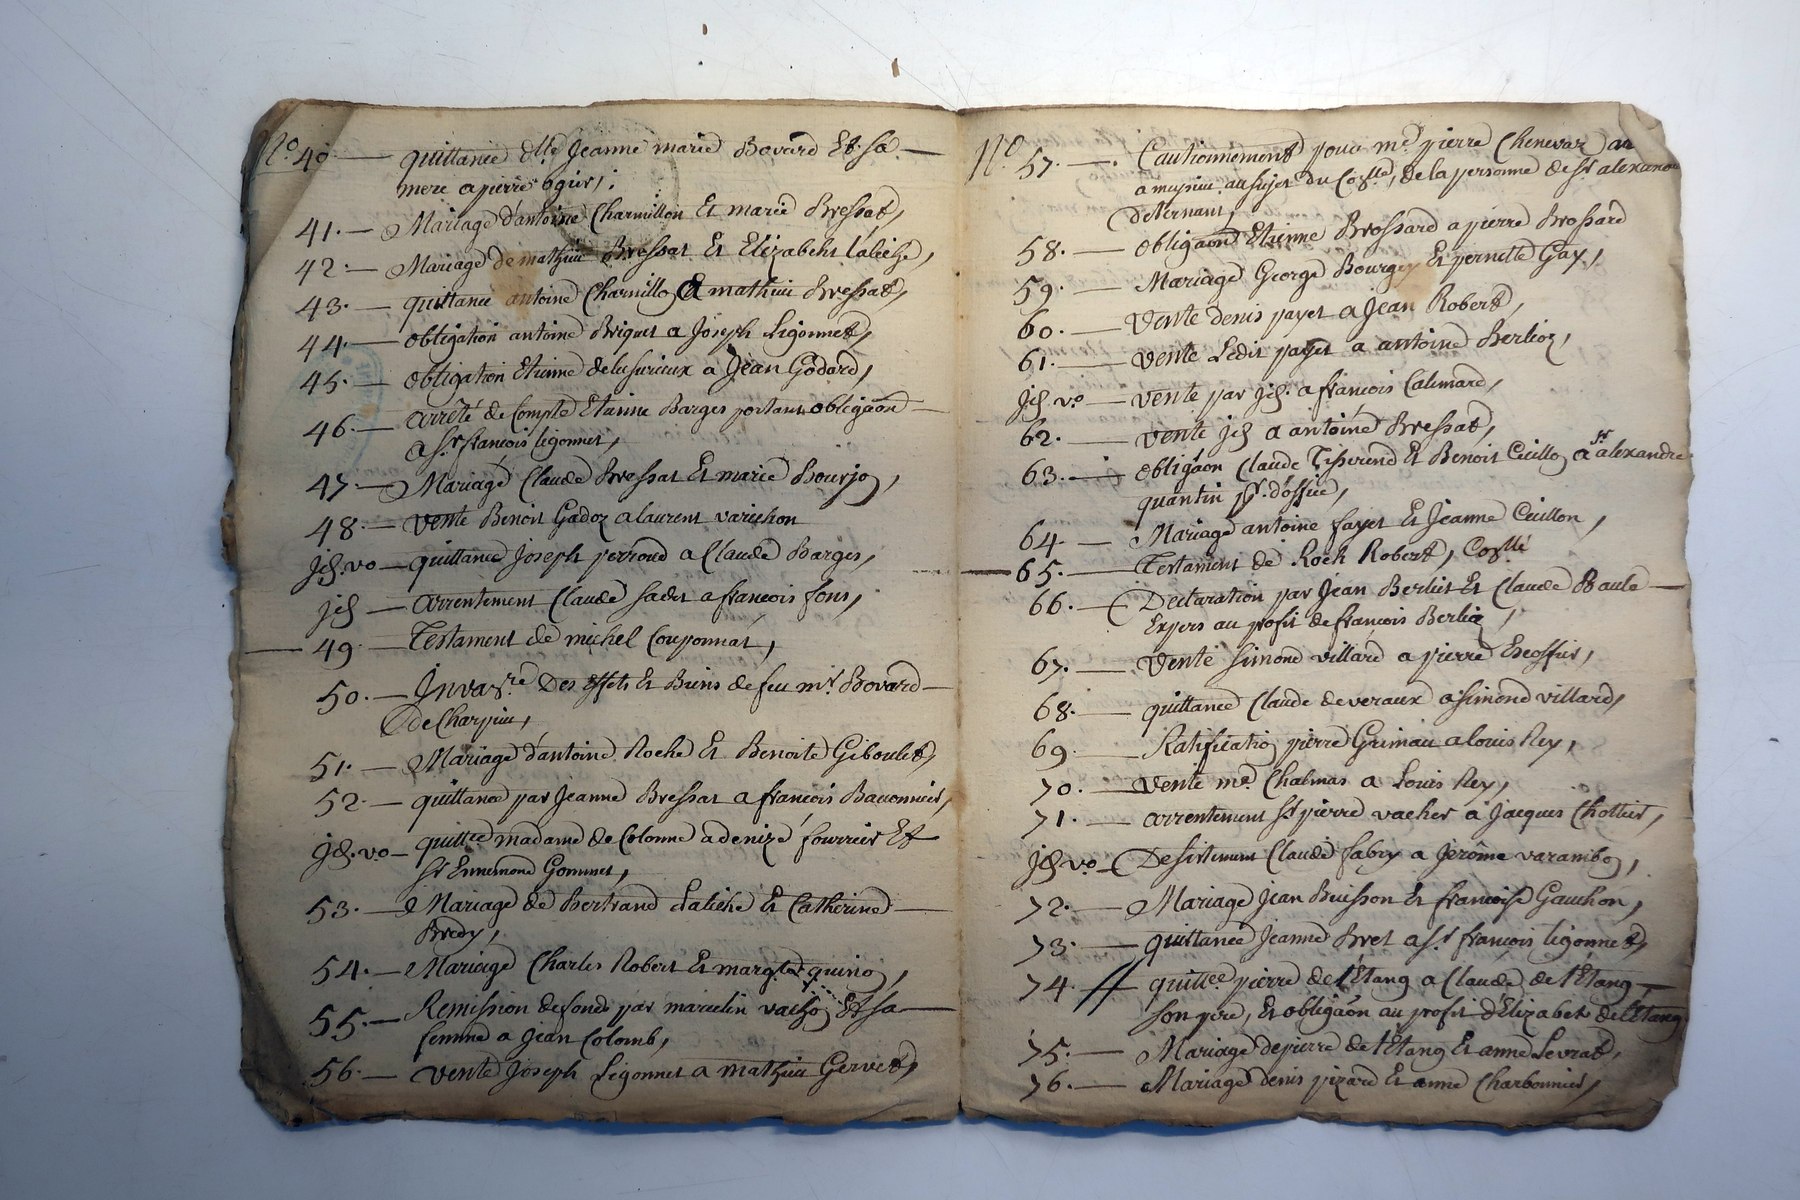 No. 40. — quittance dlle Jeanne marie Bovard Et sa —
mere a pierre ogier;
41. — Mariage d'antoine Charmillon Et marie Bressat,
42. — Mariage de mathieu Bressat Et Elizabeht Laliche,
43. — quittance antoine Charmillon A mathieu Bressat,
44. — obligation antoine Briguet a Joseph Ligonnet,
45. — obligation Etienne a Jean Godard,
46. — arrêté de Compte Etienne Barges portant obligãon —
a sr. françois ligonnet,
47. — Mariage Claude Bressat Et marie
48. — vente Benoit Gadoz a laurent varichon
jd. vo — quittance Joseph perroud a Claude Barges,
jd — arrentement Claude sadet a françois fons,
49. — Testament de michel Couponnat,
50. — Des effets Et Biens de feu mr. Bovard —
De Charpieu,
51. — Mariage d'antoine Roche Et Benoite Giboulet,
52. — quittance par Jeanne Bressat a françois
jd. vo — quittce madame de Colonne a denizé fourrier Et
sr Ennemond Gommet,
53. — Mariage de Bertrand Laliche Et Catherine —
Bredy,
54. — Mariage Charles Robert Et margte
55. — Remission de fonds par marcelin vachon Et sa —
femme a Jean Colomb,
56. — vente Joseph Ligonnet a mathieu Gervet,
No 57. — Cautionnement pour me. pierre Chenevaz
au sujet du de la personne de sr alexandre
De ternant,
58. — obligãon Etienne Brossard a pierre Brossard
59. — Mariage George Bourgey Et pernette Gay,
60. — vente denis payet a Jean Robert,
61. — vente Ledit payet a antoine Berlioz,
jd. vo — vente par jd. a françois Calimard,
62. — vente jd a antoine Bressat,
63. — obligãon Claude Tisserend Et Benoit Cuillon a sr alexandre
quantin d'office,
64. — Mariage antoine fayet Et Jeanne Cuillon,
65. — Testament de Roch Robert,
66. — Declaration par Jean Berliet Et Claude Baule —
Expers au profit de françois Berlioz,
67. — vente simond villard a pierre Escoffier,
68. — quittance Claude deveraux a simond villard,
69. — Ratification pierre Grimau a louis Rey,
70. — vente me. Chalmas a Louis Rey,
71. — arrentement sr pierre vacher a Jacques Chottier,
jd vo. — Desistement Claude fabry a Jerôme varambon,
72. — Mariage Jean Buisson Et françoise Gauchon,
73. — quittance Jeanne Bret a sr. françois ligonnet,
74. — quittce pierre de l'Etang a Claude de l'Etang —
son pere, Et obligãon au profit d'Elizabet de l'Etang
75. — Mariage de pierre de l'Etang Et anne Levrat,
76. — Mariage denis pizard Et anne Charbonnier,